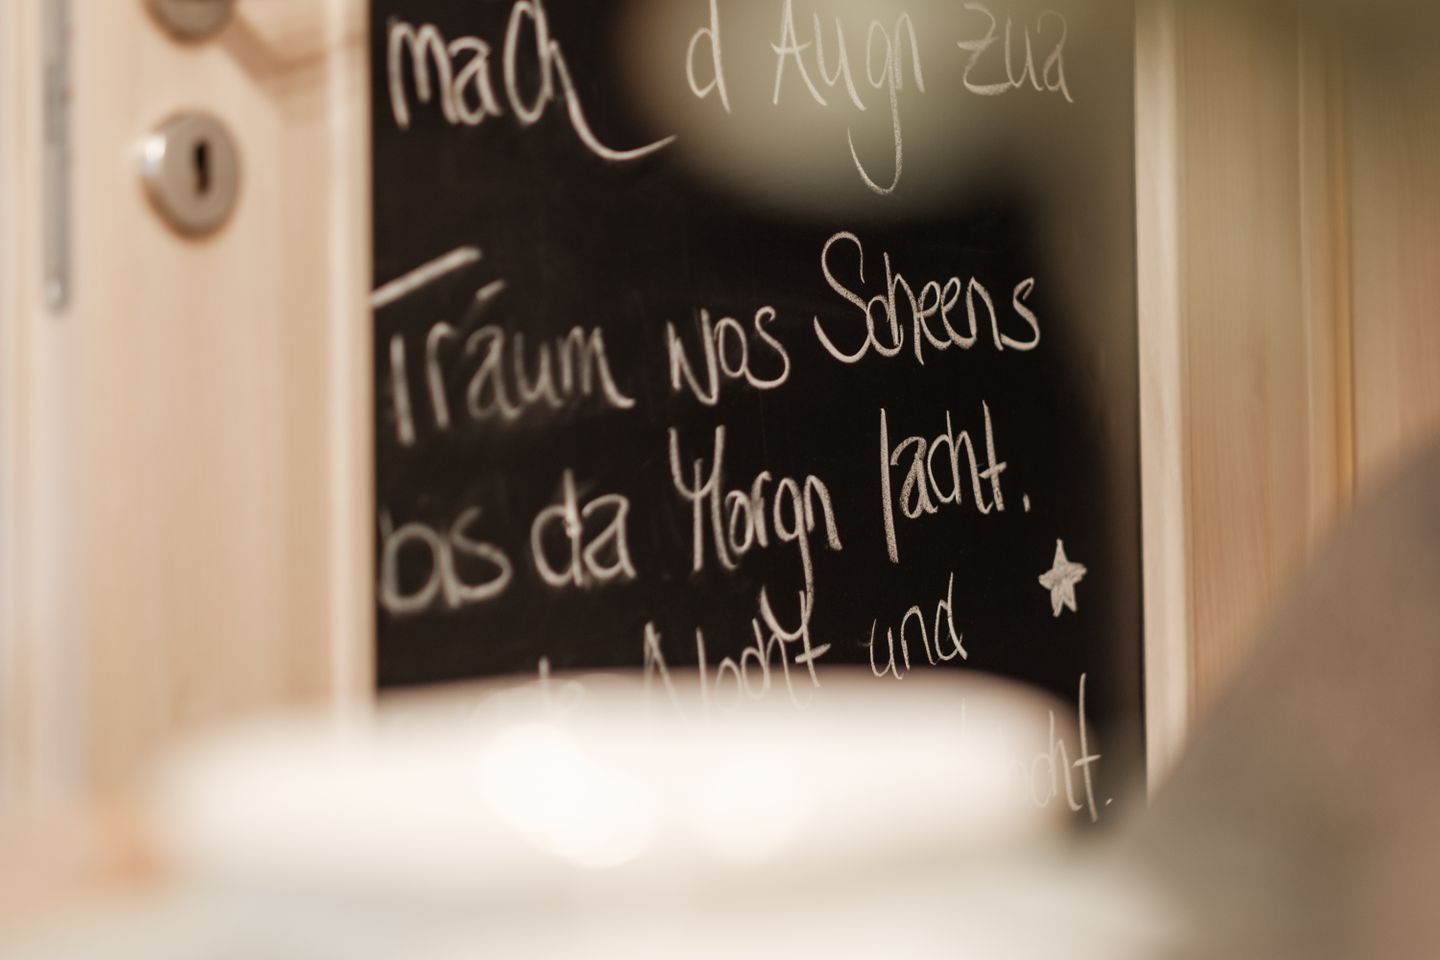 mach d Augn zua
Traum wos Scheens
bis da Morgn lacht.
Nocht und